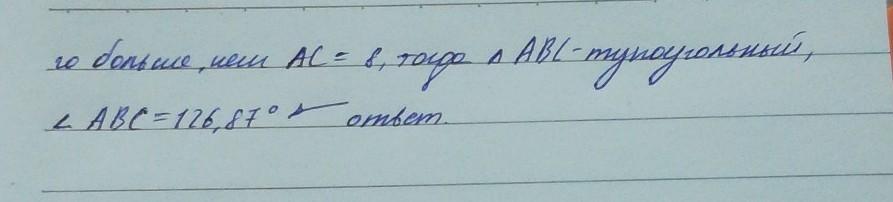 го больше, чем AC = 8, тогда △ ABC - тупоугольный,
∠ ABC = 126,87° ответ.